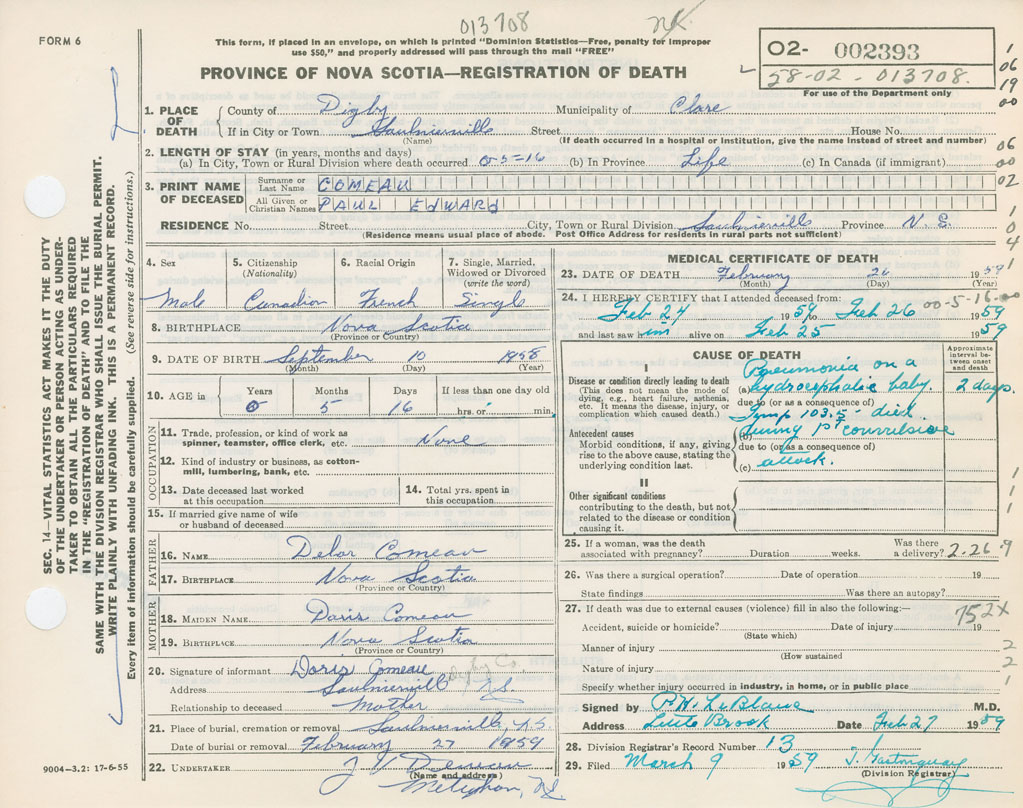 013708 NK.
FORM 6
This form, if placed in an envelope, on which is printed "Dominion Statistics—Free, penalty for improper
use $50," and properly addressed will pass through the mail "FREE"
PROVINCE OF NOVA SCOTIA—REGISTRATION OF DEATH
O2- 002393
58-02-013708.
For use of the Department only
1. PLACE OF DEATH County of Digby Municipality of Clare
If in City or Town Saulnierville Street House No.
(Name) (If death occurred in a hospital or institution, give the name instead of street and number)
2. LENGTH OF STAY (in years, months and days)
(a) In City, Town or Rural Division where death occurred 0-5-16 (b) In Province Life (c) In Canada (if immigrant)
3. PRINT NAME OF DECEASED Surname or Last Name COMEAU
All Given or Christian Names PAUL EDWARD
RESIDENCE No. Street City, Town or Rural Division Saulnierville Province N. S.
(Residence means usual place of abode. Post Office Address for residents in rural parts not sufficient)
4. Sex 5. Citizenship (Nationality) 6. Racial Origin 7. Single, Married, Widowed or Divorced (write the word)
Male Canadian French Single
8. BIRTHPLACE Nova Scotia
(Province or Country)
9. DATE OF BIRTH September 10 1958
(Month) (Day) (Year)
10. AGE in Years Months Days If less than one day old
0 5 16 hrs. or min.
OCCUPATION
11. Trade, profession, or kind of work as spinner, teamster, office clerk, etc. None
12. Kind of industry or business, as cotton-mill, lumbering, bank, etc.
13. Date deceased last worked at this occupation
14. Total yrs. spent in this occupation
15. If married give name of wife or husband of deceased
FATHER
16. NAME Delor Comeau
17. BIRTHPLACE Nova Scotia
(Province or Country)
MOTHER
18. MAIDEN NAME Doris Comeau
19. BIRTHPLACE Nova Scotia
(Province or Country)
20. Signature of informant Doris Comeau
Digby Co.
Address Saulnierville N.S.
Relationship to deceased Mother
21. Place of burial, cremation or removal Saulnierville, N.S
Date of burial or removal February 27 1959
22. UNDERTAKER
(Name and address)
Meteghan, N.S.
9004-3.2: 17-6-55
MEDICAL CERTIFICATE OF DEATH
23. DATE OF DEATH February 26 1959
(Month) (Day) (Year)
24. I HEREBY CERTIFY that I attended deceased from: 00-5-16-00
Feb 24 1959 to Feb 26 1959
and last saw him alive on Feb 25 1959
CAUSE OF DEATH
Approximate interval between onset and death
I
Disease or condition directly leading to death
(This does not mean the mode of dying, e.g., heart failure, asthenia, etc. It means the disease, injury, or complication which caused death.)
Pneumonia on a
(a) hydrocephalic baby. 2 days.
due to (or as a consequence of)
Temp 103.5 - died
Antecedent causes
Morbid conditions, if any, giving rise to the above cause, stating the underlying condition last.
(b) during 1st convulsive
due to (or as a consequence of)
(c) attack.
II
Other significant conditions
contributing to the death, but not related to the disease or condition causing it.
25. If a woman, was the death associated with pregnancy? Duration weeks. Was there a delivery? 2.26.9
26. Was there a surgical operation? Date of operation 19
State findings Was there an autopsy?
27. If death was due to external causes (violence) fill in also the following:— 752X
Accident, suicide or homicide? Date of injury 19
(State which)
Manner of injury
(How sustained
Nature of injury
Specify whether injury occurred in industry, in home, or in public place
Signed by P.H. LeBlanc M.D.
Address Little Brook Date Feb 27 1959
28. Division Registrar's Record Number 13
29. Filed March 9 1959
(Division Registrar)
SEC. 14—VITAL STATISTICS ACT MAKES IT THE DUTY
OF THE UNDERTAKER OR PERSON ACTING AS UNDER-
TAKER TO OBTAIN ALL THE PARTICULARS REQUIRED
IN THE "REGISTRATION OF DEATH" AND TO FILE THE
SAME WITH THE DIVISION REGISTRAR WHO SHALL ISSUE THE BURIAL PERMIT.
WRITE PLAINLY WITH UNFADING INK. THIS IS A PERMANENT RECORD.
Every item of information should be carefully supplied. (See reverse side for instructions.)
1
06
19
00
06
00
02
1
0
4
1
1
1
2
2
1